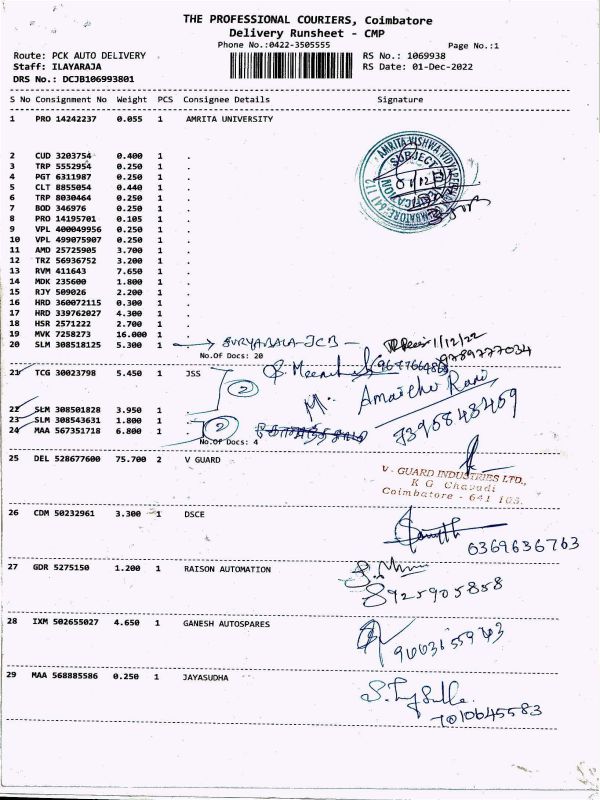 THE PROFESSIONAL COURIERS, Coimbatore
Delivery Runsheet - CMP
Phone No.:0422-3505555
Page No.:1
Route: PCK AUTO DELIVERY
RS No.: 1069938
Staff: ILAYARAJA
RS Date: 01-Dec-2022
DRS No.: DCJB106993801
S No Consignment No Weight PCS Consignee Details Signature
1 PRO 14242237 0.055 1 AMRITA UNIVERSITY
2 CUD 3203754 0.400 1 .
3 TRP 5552954 0.250 1 .
4 PGT 6311987 0.250 1 .
5 CLT 8855054 0.440 1 .
6 TRP 8030464 0.250 1 .
7 BOD 346976 0.250 1 .
8 PRO 14195701 0.105 1 .
9 VPL 400049956 0.250 1 .
10 VPL 499075907 0.250 1 .
11 AMD 25725905 3.700 1 .
12 TRZ 56936752 3.200 1 .
13 RVM 411643 7.650 1 .
14 MDK 235600 1.800 1 .
15 RJY 509026 2.200 1 .
16 HRD 360072115 0.300 1 .
17 HRD 339762027 4.300 1 .
18 HSR 2571222 2.700 1 .
19 MVK 7258273 16.000 1 .
20 SLM 308518125 5.300 1 SURYABALA-JCB -
1/12/22
9789777034
No.Of Docs: 20
21 TCG 30023798 5.450 1 JSS
2
22 SLM 308501828 3.950 1 .
23 SLM 308543631 1.800 1 .
24 MAA 567351718 6.800 1 .
2
No.Of Docs: 4
7395848459
25 DEL 528677600 75.700 2 V GUARD
V - GUARD INDUSTRIES LTD.,
K G Chavadi
Coimbatore - 641 105.
26 CDM 50232961 3.300 1 DSCE
6369636763
27 GDR 5275150 1.200 1 RAISON AUTOMATION
8925905858
28 IXM 502655027 4.650 1 GANESH AUTOSPARES
29 MAA 568885586 0.250 1 JAYASUDHA
7010645583